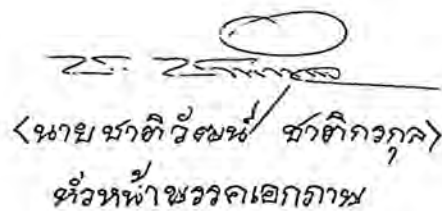 (นายชาติวัฒน์ ชาติกรกุล)
หัวหน้าพรรคเอกภาพ